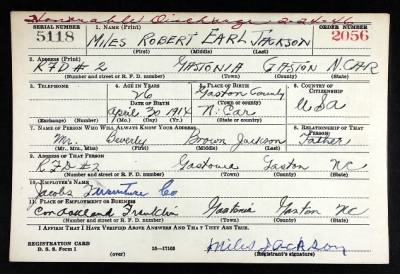 Honorable Discharge 2-24-46
SERIAL NUMBER 1. NAME (Print) ORDER NUMBER
5118 MILES ROBERT EARL JACKSON 2056
(First) (Middle) (Last)
2. ADDRESS (Print)
RFD # 2 GASTONIA GASTON N CAR
(Number and street or R. F. D. number) (Town) (County) (State)
3. TELEPHONE 4. AGE IN YEARS 5. PLACE OF BIRTH 6. COUNTRY OF CITIZENSHIP
26 Gaston County
DATE OF BIRTH (Town or county)
April 30 1914 N. Car USA
(Exchange) (No.) (Mo.) (Day) (Yr.) (State or country)
7. NAME OF PERSON WHO WILL ALWAYS KNOW YOUR ADDRESS 8. RELATIONSHIP OF THAT PERSON
Mr. Beverly Brown Jackson Father
(Mr., Mrs., Miss) (First) (Middle) (Last)
9. ADDRESS OF THAT PERSON
RFD #2 Gastonia Gaston NC
(Number and street or R. F. D. number) (Town) (County) (State)
10. EMPLOYER'S NAME
Jacobs Furniture Co
11. PLACE OF EMPLOYMENT OR BUSINESS
Franklin Gastonia Gaston NC
(Number and street or R. F. D. number) (Town) (County) (State)
I AFFIRM THAT I HAVE VERIFIED ABOVE ANSWERS AND THAT THEY ARE TRUE.
REGISTRATION CARD
D. S. S. Form 1 16—17105 Miles Jackson
(over) (Registrant's signature)